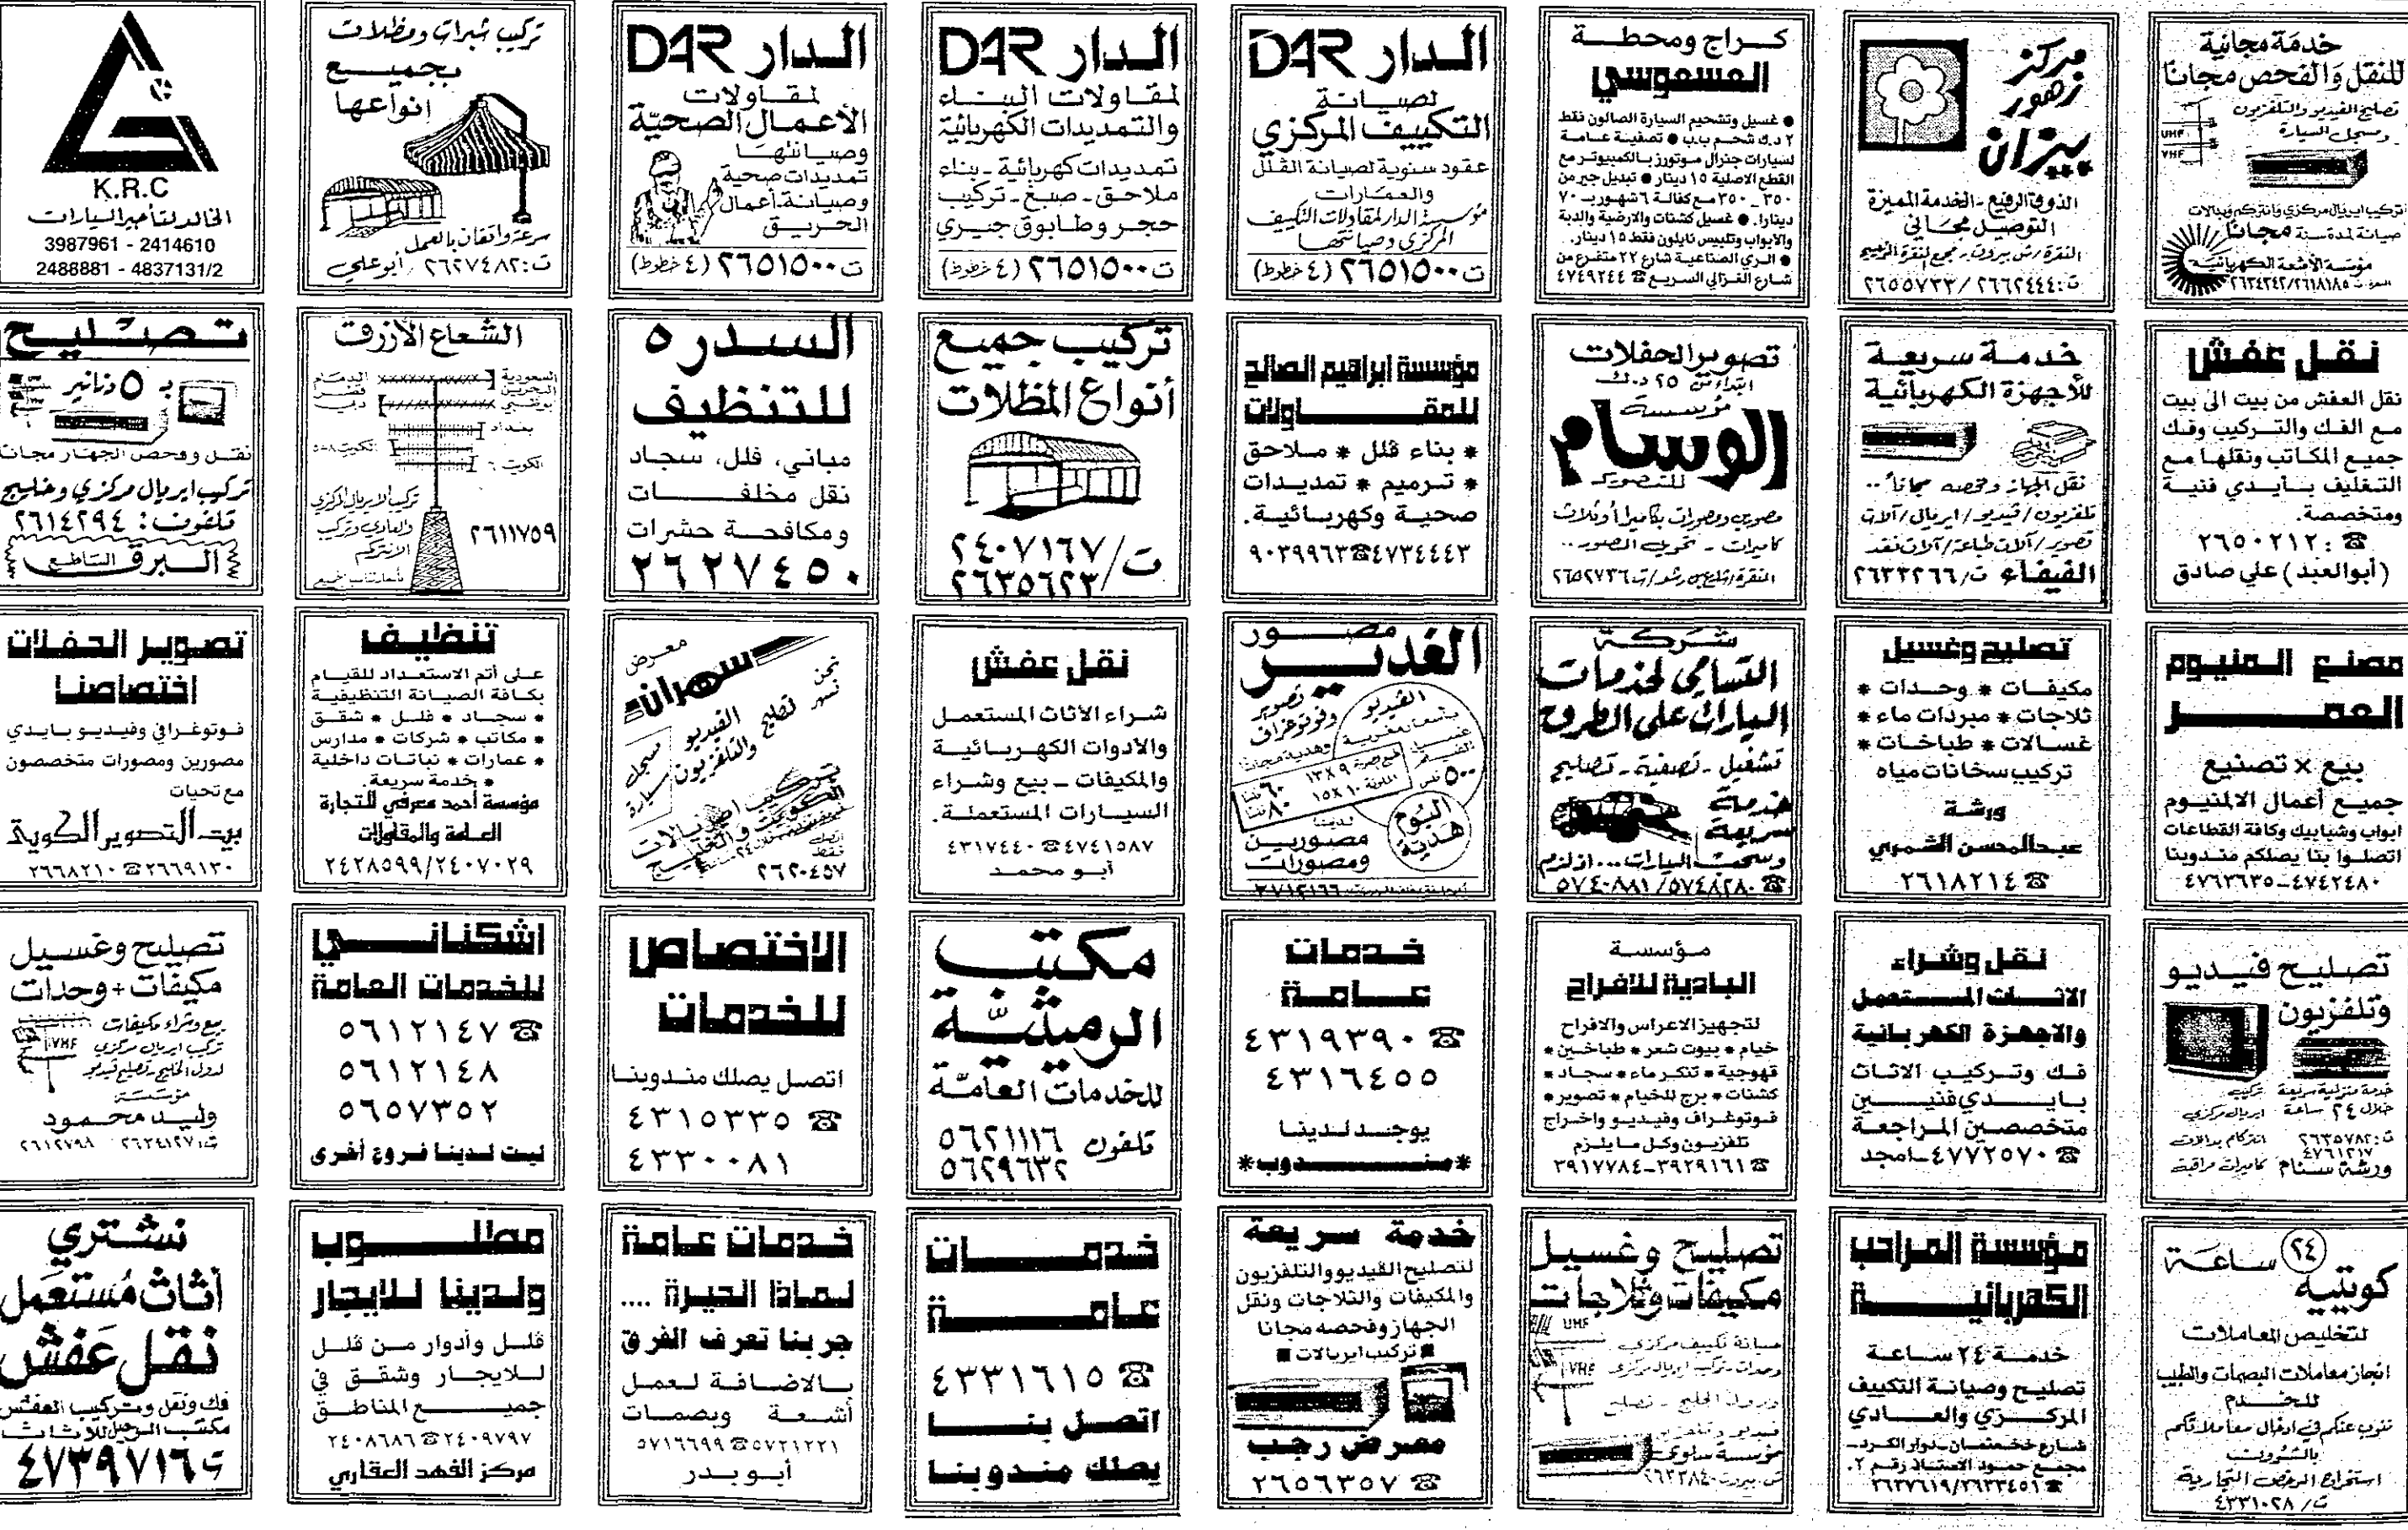 خدمة مجانية
للنقل والفحص مجاناً
تصليح الفيديو والتلفزيون
ومسجل السيارة
UHF
VHF
تركيب ايريال مركزي وانتركم وبدالات
صيانة لمدة سنة مجاناً
مؤسسة الأشعة الكهربائية
٢٦٣٤٢٤٢/٢٦١٨١٨٥
مركز
زهور
بيزان
الذوق الرفيع - الخدمة المميزة
التوصيل مجاني
ت: ٢٦٦٢٤٤٤ / ٢٦٥٥٧٣٣
كراج ومحطة
العسعوسي
● غسيل وتشحيم السيارة الصالون فقط
٢ د.ك شحم ب.ب ● تصفية عامة
لسيارات جنرال موتورز بالكمبيوتر مع
القطع الاصلية ١٥ دينار ● تبديل جير من
٣٥٠ ـ ٣٥٠ مع كفالة ٦ شهور بـ ٧٠
دينارا. ● غسيل كشنات والارضية والدبة
والابواب وتلبيس نايلون فقط ١٥ دينار.
● الري الصناعية شارع ٢٢ متفرع من
شارع الغزالي السريع ☎ ٤٧٤٩٢٤٤
الدار DAR
لصيانة
التكييف المركزي
عقود سنوية لصيانة الفلل
والعمارات
مؤسسة الدار لمقاولات التكييف
المركزي وصيانتها
ت ٢٦٥١٥٠٠ (٤ خطوط)
الدار DAR
لمقاولات البناء
والتمديدات الكهربائية
تمديدات كهربائية - بناء
ملاحق - صبغ - تركيب
حجر وطابوق جيري
ت ٢٦٥١٥٠٠ (٤ خطوط)
الدار DAR
لمقاولات
الأعمال الصحية
وصيانتها
تمديدات صحية
وصيانة أعمال
الحريق
ت ٢٦٥١٥٠٠ (٤ خطوط)
تركيب شبرات ومظلات
بجميع
انواعها
سرعة واتقان بالعمل
ت: ٢٦٢٧٤٨٢ / أبو علي
K.R.C
الخالد لتأجير السيارات
3987961 - 2414610
2488881 - 4837131/2
نقل عفش
نقل العفش من بيت الى بيت
مع الفك والتركيب وفك
جميع المكاتب ونقلها مع
التغليف بأيدي فنية
ومتخصصة.
☎: ٢٦٥٠٢١٢
(أبوالعبد) علي صادق
خدمة سريعة
للأجهزة الكهربائية
نقل الجهاز وفحصه مجاناً ..
تلفزيون / فيديو / ايريال / آلات
تصوير / آلات طباعة / آلات نقد
الفيفاء ت/ ٢٦٣٣٢٦٦
تصوير الحفلات
ابتداء من ٢٥ د.ك
مؤسسة
الوسام
للتصوير
مصورين ومصورات بكاميرا أو ثلاث
كاميرات - تحويل الصور ..
ت/ ٢٦٥٢٧٣٦
مؤسسة ابراهيم الصالح
للمقاولات
* بناء فلل * ملاحق
* ترميم * تمديدات
صحية وكهربائية.
٤٧٣٤٤٤٣ ☎ ٩٠٣٩٩٦٣
تركيب جميع
أنواع المظلات
ت/ ٢٤٠٧١٦٧
٢٦٣٥٦٢٣
السدره
للتنظيف
مباني، فلل، سجاد
نقل مخلفات
ومكافحة حشرات
٢٦٢٧٤٥٠
الشعاع الأزرق
السعودية
البحرين
ابوظبي
الدمام
قطر
دبي
بغداد
الكويت
تركيب الايريال المركزي
والعادي وتركيب
الانتركم
٢٦١١٧٥٩
تصليح
بـ ٥ دنانير
نقل وفحص الجهاز مجاناً
تركيب ايريال مركزي وخليج
تلفون: ٢٦١٤٢٩٤
البرق الساطع
مصنع المنيوم
العمر
بيع × تصنيع
جميع أعمال الالمنيوم
ابواب وشبابيك وكافة القطاعات
اتصلوا بنا يصلكم مندوبنا
٤٧٤٢٤٨٠ـ٤٧٦٣٦٣٥
تصليح وغسيل
مكيفات * وحدات *
ثلاجات * مبردات ماء *
غسالات * طباخات *
تركيب سخانات مياه
ورشة
عبدالمحسن الشمري
☎ ٢٦١٨٢١٤
شركة
التسامي لخدمات
السيارات على الطرق
تشغيل - تصفية - تصليح
خدمة
سريعة
☎ ٥٧٤٨٢٨٠ / ٥٧٤٠٨٨١
مصور
الغدير
تصوير
وفوتوغراف
الفيديو
٩×١٣
١٠×١٥
اليوم
هدية
لدينا
مصورين
ومصورات
نقل عفش
شراء الاثاث المستعمل
والأدوات الكهربائية
والمكيفات ـ بيع وشراء
السيارات المستعملة.
٤٧٤١٥٨٧ ☎ ٤٣١٧٤٤٠
أبو محمد
معرض
سهران
نحن
نسهر
تصليح الفيديو
والتلفزيون
مسجل
سيارة
تركيب ايريالات
الكويت والخليج
٢٦٢٠٤٥٧
تنظيف
على أتم الاستعداد للقيام
بكافة الصيانة التنظيفية
* سجاد * فلل * شقق
* مكاتب * شركات * مدارس
* عمارات * نباتات داخلية
* خدمة سريعة.
مؤسسة أحمد معرفي للتجارة
العامة والمقاولات
٢٤٠٧٠٢٩/٢٤٢٨٥٩٩
تصوير الحفلات
اختصاصنا
فوتوغرافي وفيديو بايدي
مصورين ومصورات متخصصون
مع تحيات
بيت التصوير الكويتي
٢٦٦٩١٣٠ ☎ ٢٦٦٨٢١٠
تصليح فيديو
وتلفزيون
خدمة منزلية سريعة
خلال ٢٤ ساعة
تركيب
ايريال مركزي
انتركام بدالات
كاميرات مراقبة
ت: ٢٦٣٥٧٨٢
٤٧٦١٢١٧
ورشة سنام
نقل وشراء
الاثاث المستعمل
والاجهزة الكهربائية
فك وتركيب الاثاث
بايدي فنيين
متخصصين المراجعة
☎ ٤٧٧٢٥٧٠ـ امجد
مؤسسة
البادية للافراح
لتجهيز الاعراس والافراح
خيام * بيوت شعر * طباخين *
قهوجية * تنكر ماء * سجاد *
كشنات * برج للخيام * تصوير *
فوتوغراف وفيديو واخراج
تلفزيون وكل مايلزم
☎ ٣٩٢٩١٦١ـ٣٩١٧٧٨٤
خدمات
عامة
☎ ٤٣١٩٣٩٠
٤٣١٦٤٥٥
يوجد لدينا
*مندوب*
مكتب
الرميثية
للخدمات العامة
تلفون ٥٦٢١١١٦
٥٦٢٩٦٣٢
الاختصاص
للخدمات
اتصل يصلك مندوبنا
☎ ٤٣١٥٣٣٥
٤٣٣٠٠٨١
اشكناني
للخدمات العامة
☎ ٥٦١٢١٤٧
٥٦١٢١٤٨
٥٦٥٧٣٥٢
ليست لدينا فروع أخرى
تصليح وغسيل
مكيفات + وحدات
بيع وشراء مكيفات
تركيب ايريال مركزي
لدول الخليج - تصليح فيديو
VHF
مؤسسة
وليد محمود
ت: ٢٦٢٤١٢٧ ٢٦١٢٧٩٨
٢٤ ساعة
كويتية
لتخليص المعاملات
انجاز معاملات البصمات والطبيب
للخدم
ننوب عنكم في ادخال معاملاتكم
بالشؤون
استخراج الرخص التجارية
ت/ ٤٣٣١٠٢٨
مؤسسة المراحب
الكهربائية
خدمة ٢٤ ساعة
تصليح وصيانة التكييف
المركزي والعادي
مجمع حمود الاستاذ رقم ٢.
☎ ٢٦٣٣٤٥١/٢٦٣٧٦١٩
تصليح وغسيل
مكيفات وثلاجات
UHF
VHF
صيانة تكييف مركزي
وحدات - تركيب ايريال مركزي
ودول الخليج - تصليح
فيديو وتلفزيون
مؤسسة سلوى
خدمة سريعة
لتصليح الفيديو والتلفزيون
والمكيفات والثلاجات ونقل
الجهاز وفحصه مجانا
■ تركيب ايريالات ■
معرض رجب
☎ ٢٦٥٦٣٥٧
خدمات
عامة
☎ ٤٣٣١٦١٥
اتصل بنا
يصلك مندوبنا
خدمات عامة
لماذا الحيرة ....
جربنا تعرف الفرق
بالاضافة لعمل
أشعة وبصمات
٥٧٢١٢٢١ ☎ ٥٧١٦٦٩٩
أبو بدر
مطلوب
ولدينا للايجار
فلل وأدوار من فلل
للايجار وشقق في
جميع المناطق
٢٤٠٩٧٩٧ ☎ ٢٤٠٨٦٨٦
مركز الفهد العقاري
نشتري
أثاث مُستعمل
نقل عفش
فك ونقل وتركيب العفش
مكتب الرحيل للاثاث
ت ٤٧٣٩٧١٦